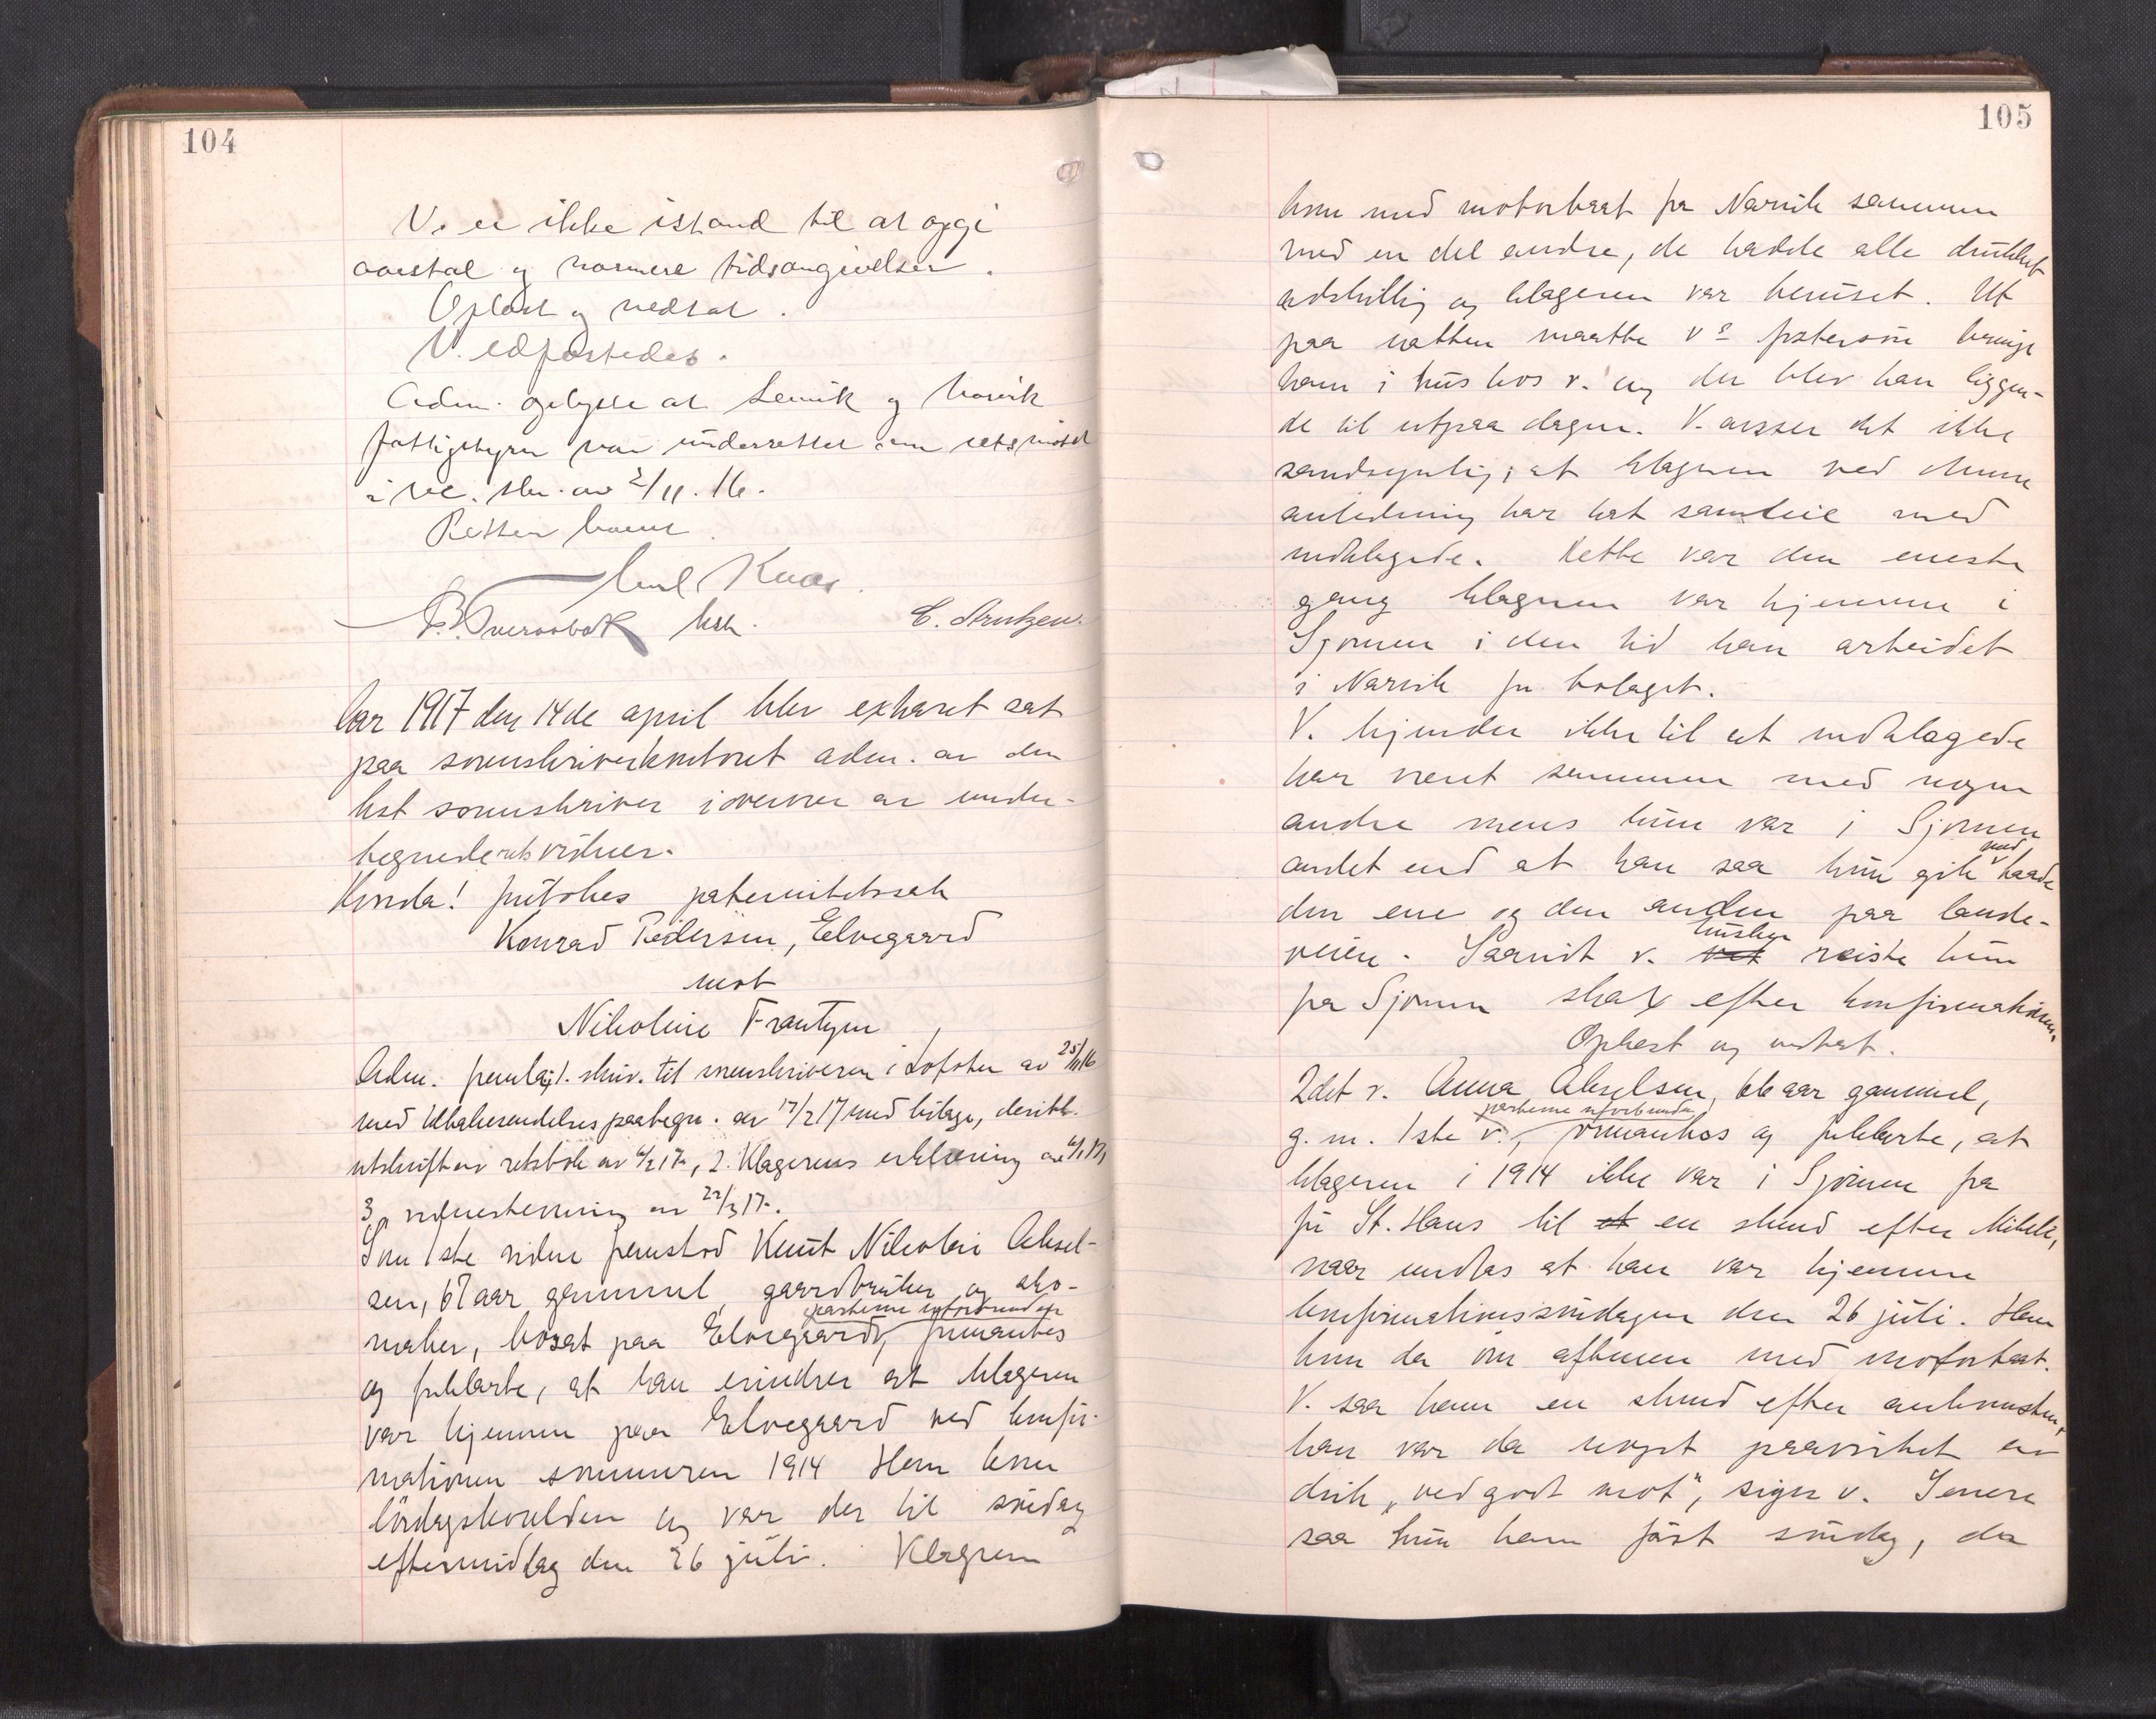 104
V. er ikke istand til at opgi
aarstal og nærmere tidsangivelser.
Oplæst og vedtat.
V. edfæstedes.
Adm. oplyste at Lenvik og Narvik
fattigstyrer var underrettet om retsmøtet
i rec. skr. av 2/11. 16.
Retten hævet.
Emil Knar
E. Arntzen.
Aar 1917 den 14de april blev extraret sat
paa sorenskriverkontoret adm. av den
kst sorenskriver i overvær av under-
tegnede retsvidner.
Hvorda! foretokes paternitetssak
Konrad Pedersen, Elvegaard
mot
Nikoline Frantzen
Adm. fremla 1. skriv. til sorenskriveren i Lofoten av 25/11 16
med tilbakesendelsespaategn. av 17/2 17 med bilage, deribl.
utskrift av retsbok av 6/2 17, 2. Klagerens erklæring av 6/1 17,
3, vidnestevning av 22/3 17.
Som 1ste vidne fremstod Knut Nikolai Aksel-
sen, 67 aar gammel, gaardbruker og sko-
partene uforbunden
maker, bosat paa Elvegaard, formantes
og forklarte, at han erindrer at klageren
var hjemme paa Elvegaard ved konfir-
mationen sommeren 1914 Han kom
lördagskvelden og var der til söndag
eftermiddag den 26 juli. Klageren
105
kom med motorbaat fra Narvik sammen
med en del andre, de hadde alle drukket
adskillig og klageren var beruset. Ut
paa natten maatte v's fostersön bringe
ham i hus hos v. og der blev han liggen-
de til utpaa dagen. V. anser det ikke
sandsynlig, at klageren ved denne
anledning har hat samleie med
indklagede. Dette var den eneste
gang klageren var hjemme i
Sjomen i den tid han arbeidet
i Narvik for bolaget.
V. kjender ikke til at indklagede
har været sammen med nogen
andre mens hun var i Sjomen
med
andet end at han saa hun gik baade
den ene og den anden paa lande-
husker
veien. Saavidt v. vet reiste hun
fra Sjomen strax efter konfirmationen.
Oplæst og vedtat.
2det v. Anna Akselsen, 66 aar gammel,
partene uforbunden
g. m. 1ste v., formantes og forklarte, at
klageren i 1914 ikke var i Sjomen fra
för St. Hans til et en stund efter Mikeli,
naar undtas at han var hjemme
konfirmationssöndagen den 26 juli. Han
kom da om aftenen med motorbaat.
V. saa ham en stund efter ankomsten,
han var da noget paavirket av
drik, "ved godt mot", siger v. Senere
saa hun ham först söndag, da